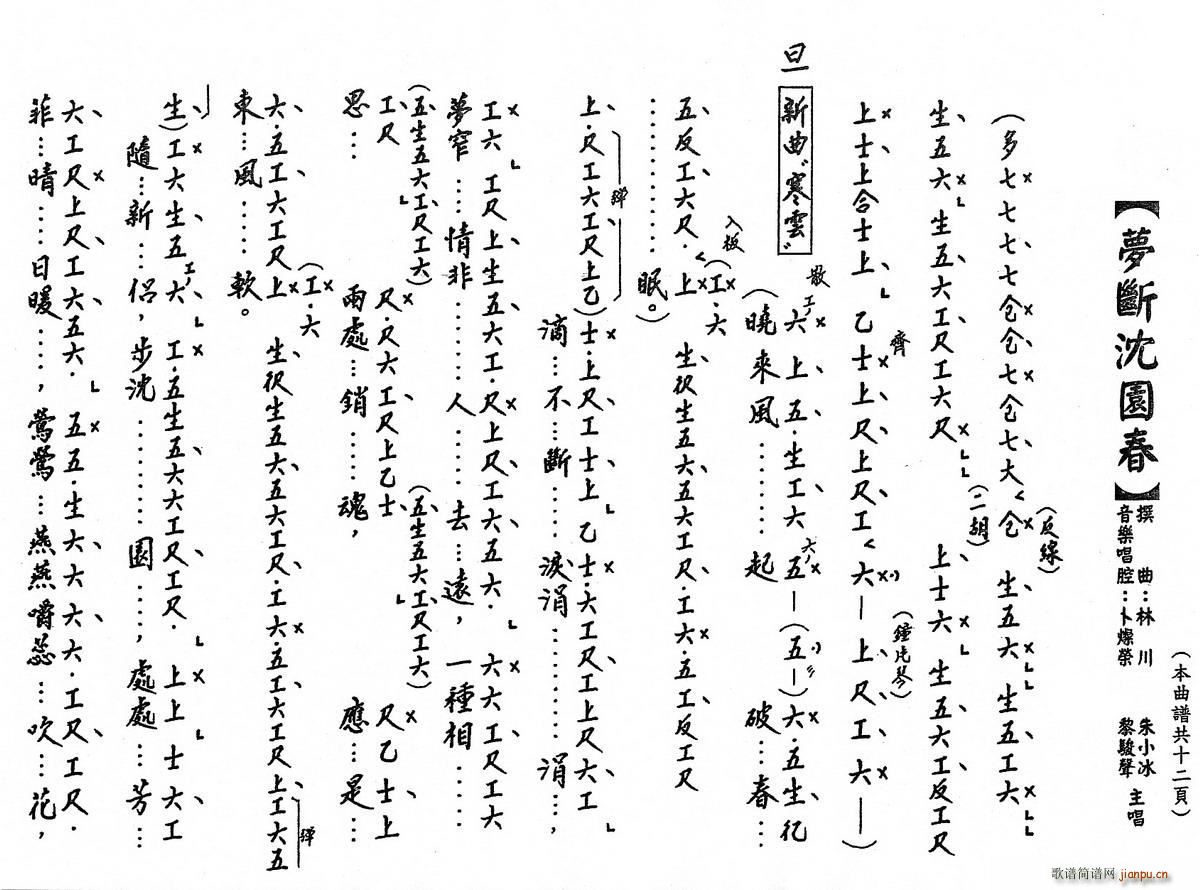 【夢斷沈園春】撰曲：林川 朱小冰
音樂唱腔：卜燦榮 黎駿聲 主唱
(本曲譜共十二頁)
(多七七七七仓仓七仓七大<仓 (反線) 生五六 生五工六
生五六 生五六工尺工六尺 (二胡) 上士六 生五六工反工尺
上士上合士上 乙士上尺上尺工<六— 上尺工六—)
齊
(鐘片琴)
旦 新曲"寒雲" 散 工六上五·生工六 六五—(五—)六·五生伬
(曉來風……起 破…春…
五反工六尺·<上 (工·六 生伬生五六五六工尺·工六·五工反工尺
入板
……眠。)
上·尺工六工尺上乙)士·上尺工士上 乙士·六工尺工上尺六工
彈
滴…不…斷 淚涓………涓…,
工六 工尺上生五六工·尺上尺工六五六· 六六工尺工六
夢窄…情非……人……去…遠, 一種相…
(五生五六工尺工六) (五生五六工尺工六)
工尺 尺·尺六工尺上乙士 尺乙士上
思… 兩處…銷…魂, 應…是…
六·五工六工尺上 (工·六 生伬生五六五六工尺·工六·五工六工尺上工六五
彈
東…風……軟。
生)工六生五工六 工·五生五六六工尺工尺· 上上士六工
隨…新…侶,步沈………園…,處處…芳…
六工尺上尺工六五六· 五五·生六六六六·工尺工尺·
菲…晴……日暖……,鶯鶯…燕燕嚼蕊…吹…花,
歌谱简谱网 jianpu.cn